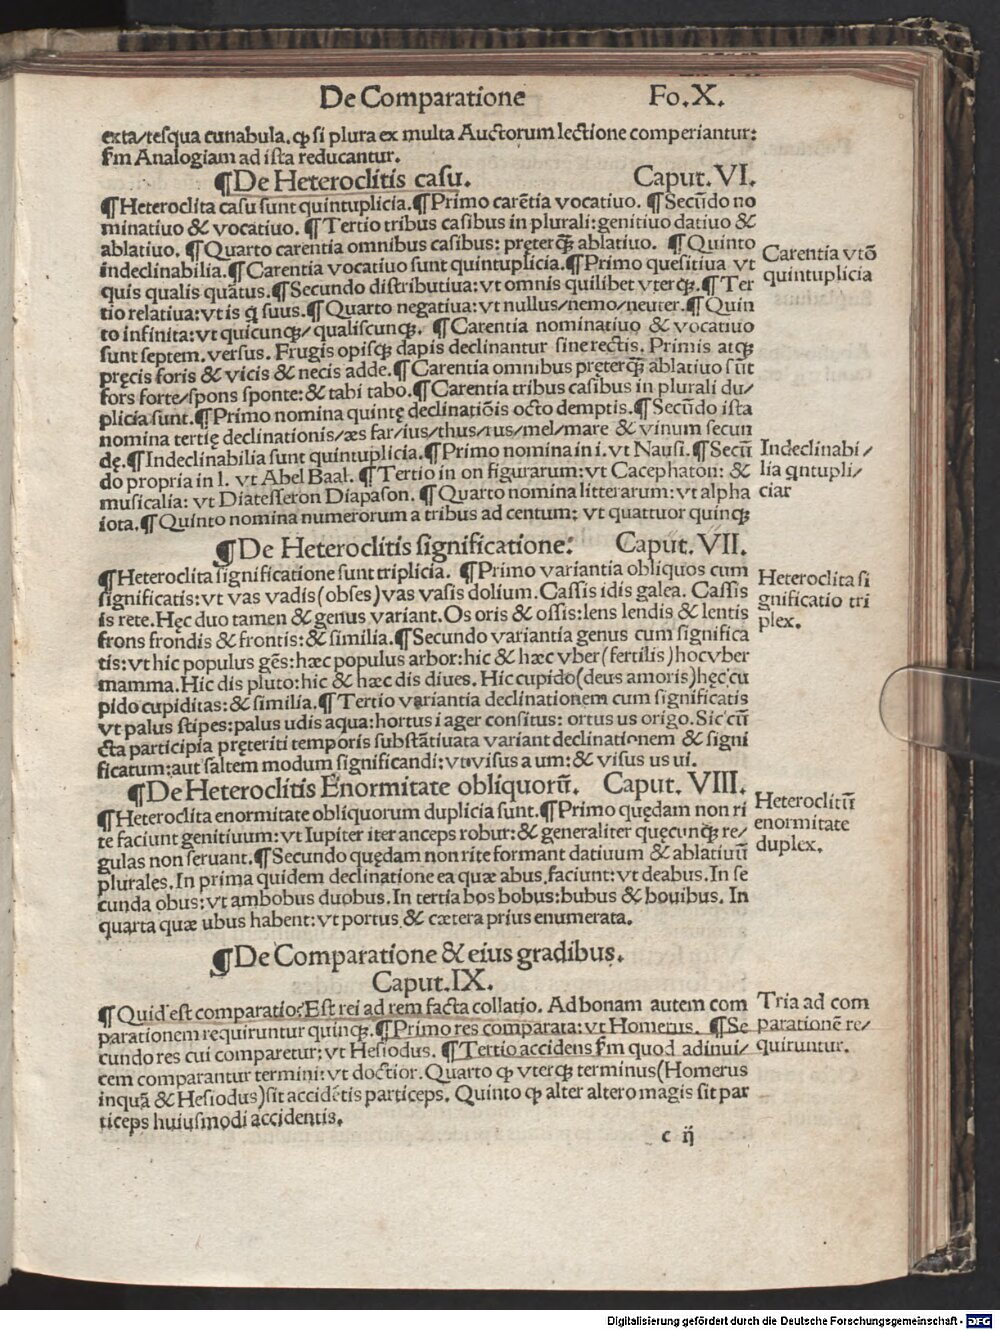 De Comparatione Fo.X.
exta/tesqua cunabula.ꝙ si plura ex multa Auctorum lectione comperiantur:
ſm Analogiam ad ista reducantur.
¶De Heteroclitis casu. Caput.VI.
¶Heteroclita casu sunt quintuplicia.¶Primo carētia vocatiuo. ¶Secūdo no
minatiuo & vocatiuo. ¶Tertio tribus casibus in plurali:genitiuo datiuo &
ablatiuo. ¶Quarto carentia omnibus casibus: pręterꝙ̄ ablatiuo. ¶Quinto
indeclinabilia.¶Carentia vocatiuo sunt quintuplicia.¶Primo quesitiua vt
quis qualis quātus.¶Secundo distributiua:vt omnis quilibet vterqꝫ.¶Ter
tio relatiua:vt is q̄ suus.¶Quarto negatiua:vt nullus/nemo/neuter.¶Quin
to infinita:vt quicunqꝫ/qualiscunqꝫ. ¶Carentia nominatiuo & vocatiuo
sunt septem.versus. Frugis opisqꝫ dapis declinantur sine rectis. Primis atqꝫ
pręcis foris & vicis & necis adde.¶Carentia omnibus pręterꝙ̄ ablatiuo sūt
fors forte/spons sponte:& tabi tabo.¶Carentia tribus casibus in plurali du/
plicia sunt.¶Primo nomina quintę declinatiōis octo demptis.¶Secūdo ista
nomina tertię declinationis/æs far/ius/thus/rus/mel/mare & vinum secun
dę.¶Indeclinabilia sunt quintuplicia.¶Primo nomina in i. vt Nausi.¶Secū
do propria in l. vt Abel Baal. ¶Tertio in on figurarum:vt Cacephaton: &
musicalia: vt Diatesseron Diapason. ¶Quarto nomina litterarum:vt alpha
iota.¶Quinto nomina numerorum a tribus ad centum: vt quattuor quinqꝫ
Carentia vtō
quintuplicia
Indeclinabi/
lia qntupli/
ciar
¶De Heteroclitis significatione: Caput.VII.
¶Heteroclita significatione sunt triplicia. ¶Primo variantia obliquos cum
significatis:vt vas vadis(obses)vas vasis dolium.Cassis idis galea. Cassis
is rete.Hęc duo tamen & genus variant.Os oris & ossis:lens lendis & lentis
frons frondis & frontis:& similia.¶Secundo variantia genus cum significa
tis:vt hic populus gēs:hæc populus arbor:hic & hæc vber(fertilis)hoc vber
mamma.Hic dis pluto:hic & hæc dis diues. Hic cupido(deus amoris)hęc cu
pido cupiditas:& similia.¶Tertio variantia declinationem cum significatis
vt palus stipes:palus udis aqua:hortus i ager consitus: ortus us origo.Sic cū
cta participia pręteriti temporis substātiuata variant declinationem & signi
ficatum:aut saltem modum significandi:vt visus a um:& visus us ui.
Heteroclita si
gnificatio tri
plex.
¶De Heteroclitis Enormitate obliquorū. Caput. VIII.
¶Heteroclita enormitate obliquorum duplicia sunt.¶Primo quędam non ri
te faciunt genitiuum:vt Iupiter iter anceps robur:& generaliter quęcunqꝫ re/
gulas non seruant.¶Secundo quędam non rite formant datiuum & ablatiuū
plurales.In prima quidem declinatione ea quæ abus faciunt:vt deabus.In se
cunda obus:vt ambobus duobus.In tertia bos bobus:bubus & bouibus. In
quarta quæ ubus habent:vt portus & cætera prius enumerata.
Heteroclitūr
enormitate
duplex.
¶De Comparatione & eius gradibus.
Caput.IX.
¶Quid est comparatio?Est rei ad rem facta collatio. Ad bonam autem com
parationem requiruntur quinqꝫ.¶Primo res comparata:vt Homerus. ¶Se
cundo res cui comparetur:vt Hesiodus. ¶Tertio accidens ſm quod adinui/
cem comparantur termini:vt doctior.Quarto ꝙ vterqꝫ terminus(Homerus
inquā & Hesiodus)sit accidētis particeps. Quinto ꝙ alter altero magis sit par
ticeps huiusmodi accidentis.
Tria ad com
parationē re/
quiruntur.
c ij
Digitalisierung gefördert durch die Deutsche Forschungsgemeinschaft - DFG